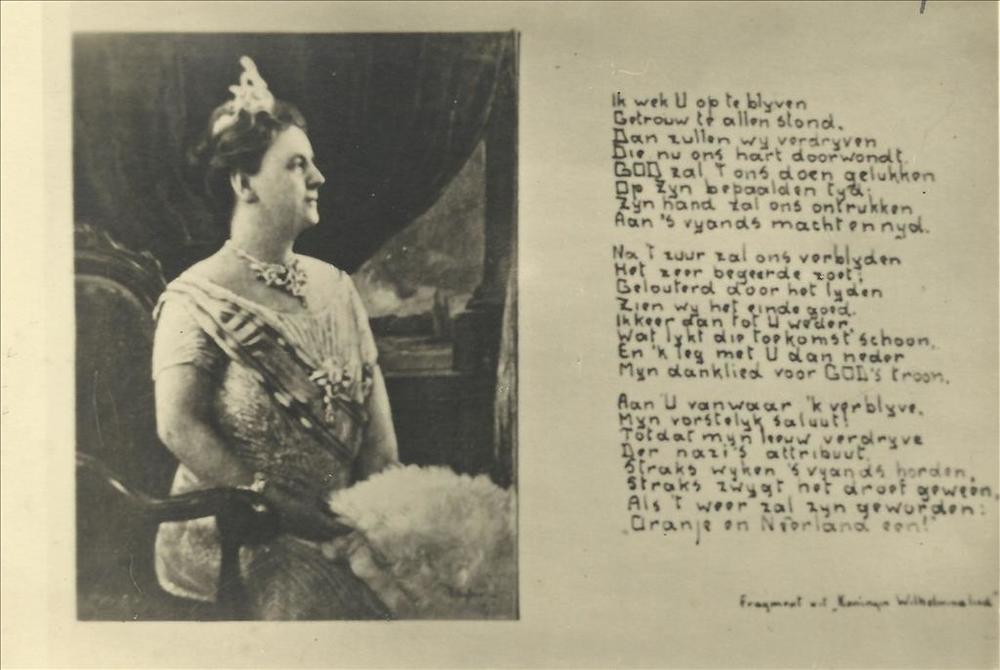 Ik wek U op te blyven
Getrouw te allen stond.
Dan zullen wy verdryven
Die nu ons hart doorwondt.
GOD zal 't ons doen gelukken
Op Zyn bepaalden tyd;
Zyn hand zal ons ontrukken
Aan 's vyands macht en nyd.
Na 't zuur zal ons verblyden
Het zeer begeerde zoet;
Gelouterd door het lyden
Zien wy het einde goed.
Ik keer dan tot U weder,
Wat lykt die toekomst schoon,
En 'k leg met U dan neder
Myn danklied voor GOD's troon.
Aan U vanwaar 'k verblyve,
Myn vorstelyk saluut!
Totdat myn leeuw verdryve
Der nazi's attribuut.
Straks wyken 's vyands horden,
Straks zwygt het droef geween,
Als 't weer zal zyn geworden:
„Oranje en Neerland een!"
Fragment uit „Koningin Wilhelminalied"